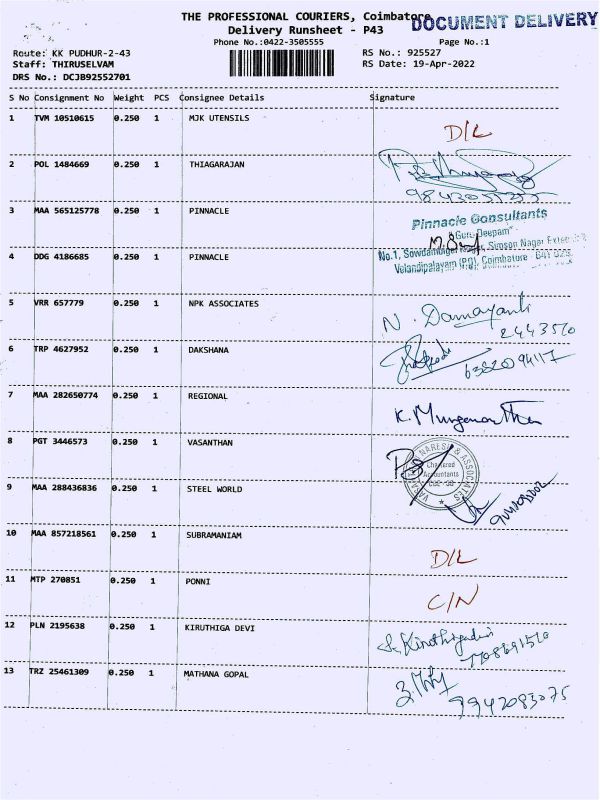 THE PROFESSIONAL COURIERS, Coimbatore
DOCUMENT DELIVERY
Delivery Runsheet - P43
Phone No.:0422-3505555 Page No.:1
Route: KK PUDHUR-2-43 RS No.: 925527
Staff: THIRUSELVAM RS Date: 19-Apr-2022
DRS No.: DCJB92552701
S No Consignment No Weight PCS Consignee Details Signature
1 TVM 10510615 0.250 1 MJK UTENSILS
D/L
2 POL 1484669 0.250 1 THIAGARAJAN
3 MAA 565125778 0.250 1 PINNACLE
Pinnacle Consultants
"Guru Deepam"
4 DDG 4186685 0.250 1 PINNACLE
No.1, Simson Nagar
Velandipalayam (PO), Coimbatore
5 VRR 657779 0.250 1 NPK ASSOCIATES
N. Damayanti
2443510
6 TRP 4627952 0.250 1 DAKSHANA
7 MAA 282650774 0.250 1 REGIONAL
K.
8 PGT 3446573 0.250 1 VASANTHAN
NARESH & ASSOCIATES
Chartered
Accountants
9 MAA 288436836 0.250 1 STEEL WORLD
10 MAA 857218561 0.250 1 SUBRAMANIAM
D/L
11 MTP 270851 0.250 1 PONNI
C/N
12 PLN 2195638 0.250 1 KIRUTHIGA DEVI
13 TRZ 25461309 0.250 1 MATHANA GOPAL
9942083075